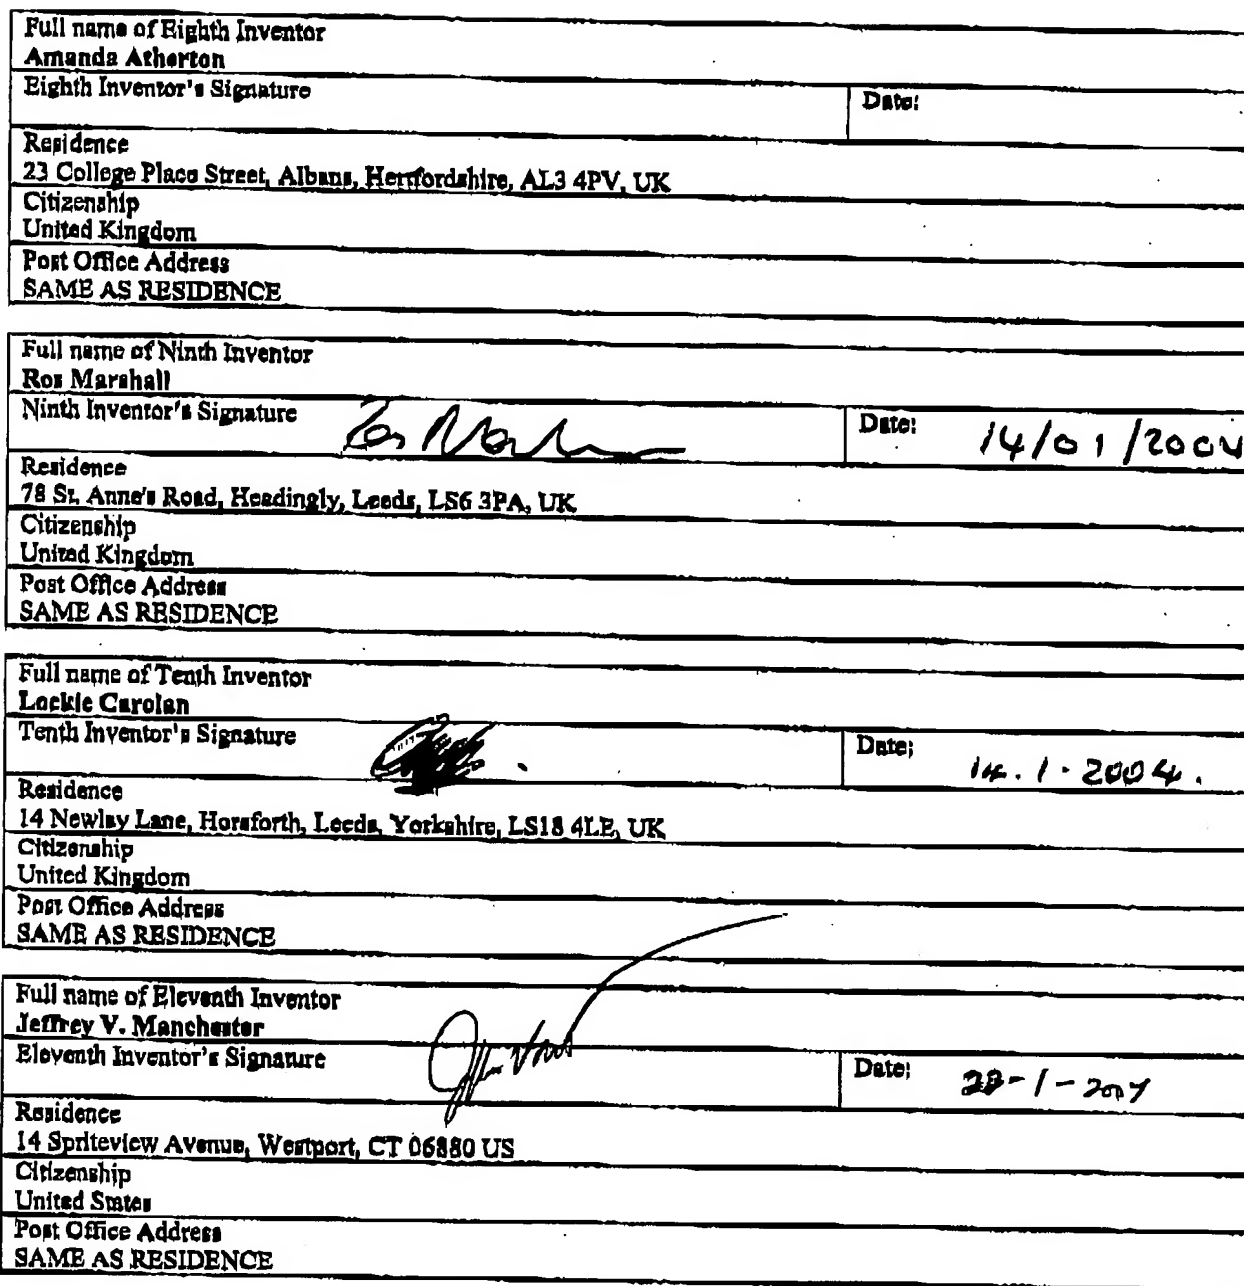 Full name of Eighth Inventor
Amanda Atherton
Eighth Inventor's Signature
Date:
Residence
23 College Place Street, Albans, Hertfordshire, AL3 4PV, UK
Citizenship
United Kingdom
Post Office Address
SAME AS RESIDENCE
Full name of Ninth Inventor
Ros Marshall
Ninth Inventor's Signature
Date: 14/01/2004
Residence
78 St. Anne's Road, Headingly, Leeds, LS6 3PA, UK
Citizenship
United Kingdom
Post Office Address
SAME AS RESIDENCE
Full name of Tenth Inventor
Lockie Carolan
Tenth Inventor's Signature
Date: 14.1.2004.
Residence
14 Newlay Lane, Horsforth, Leeds, Yorkshire, LS18 4LE, UK
Citizenship
United Kingdom
Post Office Address
SAME AS RESIDENCE
Full name of Eleventh Inventor
Jeffrey V. Manchester
Eleventh Inventor's Signature
Date:
Residence
14 Spriteview Avenue, Westport, CT 06880 US
Citizenship
United States
Post Office Address
SAME AS RESIDENCE